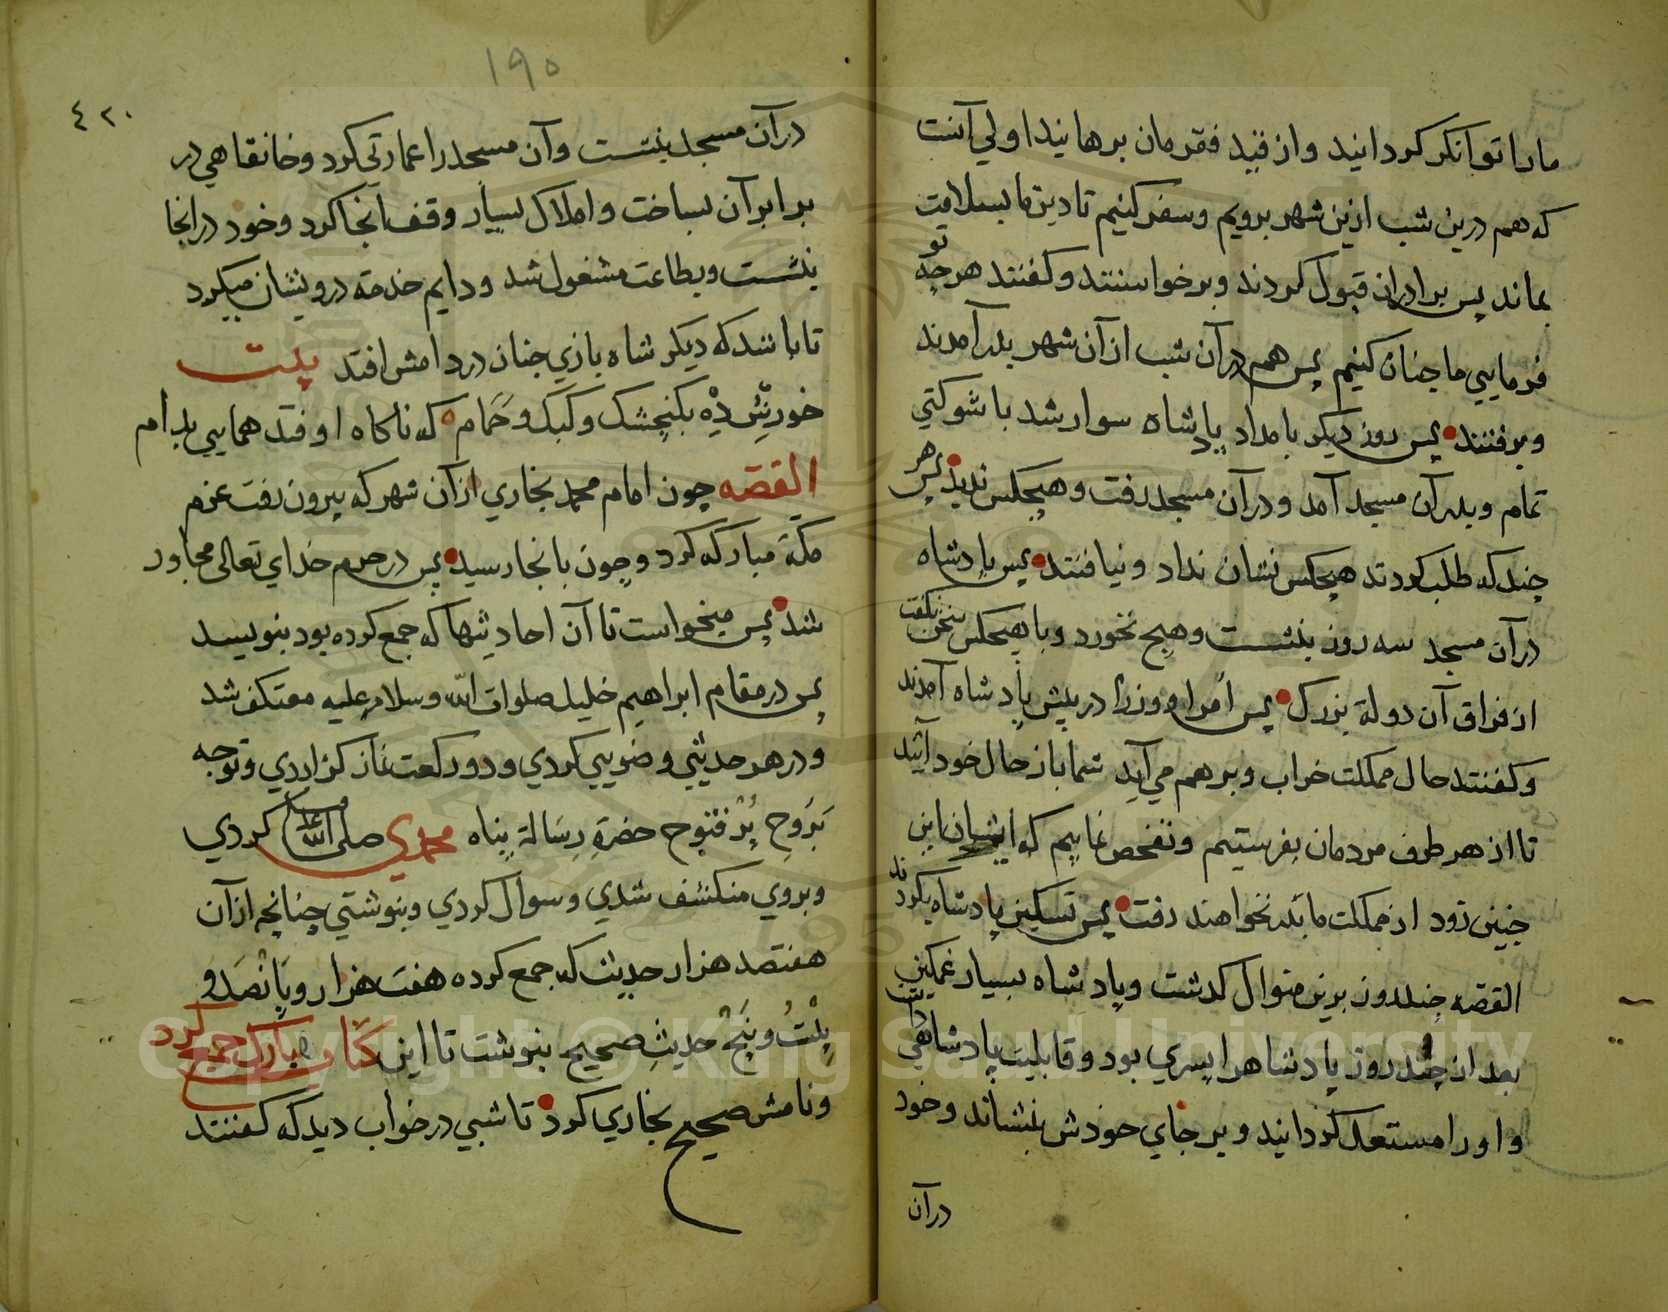 ما را توانکر کردانید و از قید فقر مان برهانید اولی آنست
که هم درین شب ازین شهر برویم و سفر کنیم تا دین ما بسلامت
بماند پس برادران قبول کردند و برخواستند و کفتند هرچه تو
فرمایی ما چنان کنیم پس هم در آن شب از آن شهر بدر آمدند
و برفتند پس روز دیکر بامداد پادشاه سوار شد با شوکتی
تمام و بدرآن مسجد آمد و در آن مسجد رفت و هیچکس ندید پس هر
چند که طلب کردند هیچکس نشان نداد و نیافتند پس پادشاه
در آن مسجد سه روز بنشست و هیچ نخورد و با هیچکس سخن نکفت
از فراق آن دولة بزرک پس امرا و وزرا در پیش پادشاه آمدند
و کفتند حال مملکت خراب و برهم می آید شما باز حال خود آئید
تا از هر طرف مردمان بفرستیم و تفحص نماییم که ایشان این
چنین زود از مملکت ما بدر نخواهند رفت پس تسکین پادشاه بکردند
القصه چند روز برین منوال کدشت و پادشاه بسیار غمکین
بعد از چند روز پادشاه را پسری بود و قابلیت پادشاهی داشت
و او را مستعد کردانید و بر جای خودش بنشاند و خود
در آن
١٩٥
٤٢٠
در آن مسجد بنشست و آن مسجد را عمارتی کرد و خانقاهی در
برابر آن بساخت و املاک بسیار وقف آنجا کرد و خود در انجا
بنشست و بطاعت مشغول شد و دایم خدمة درویشان میکرد
تا باشد که دیکر شاه بازی چنان در دامش افتد بیت
خورش ده بکنجشک و کبک و حمام که ناکاه اوفتد همایی بدام
القصه چون امام محمد بخاری از آن شهر که بیرون رفت عزم
مکة مبارکه کرد و چون بانجا رسید پس در حرم خدای تعالی مجاور
شد پس میخواست تا آن احادیثها که جمع کرده بود بنویسد
پس در مقام ابراهیم خلیل صلوات الله وسلام علیه معتکف شد
و در هر حدیثی وضویی کردی و دو رکعت نماز کزاردی و توجه
بروح پر فتوح حضرة رسالة پناه محمدی صلی الله علیه وسلم کردی
و بروی منکشف شدی و سوال کردی و بنوشتی چنانچه از آن
هفتصد هزار حدیث که جمع کرده هفت هزار و پانصد و
بیست و پنج حدیث صحیح بنوشت تا این کتاب مبارک جمع کرد
و نامش صحیح بخاری کرد تا شبی در خواب دید که کفتند
Copyright © King Saud University